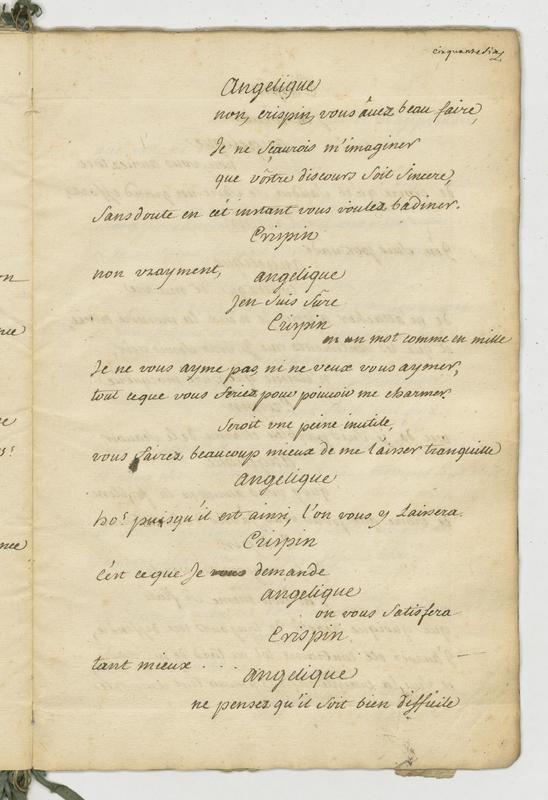 cinquante six
Angelique
non, crispin, vous âuez beau faire,
Je ne sçaurois m'imaginer
que vôstre discours soit sincere,
Sans doute en cét instant vous voulez badiner.
Crispin
non vrayment,
angelique
Jen suis sûre
Crispin
en un mot comme en mille
Je ne vous ayme pas ni ne veux vous aymer,
tout ce que vous feriez pour pouvoir me charmer
Seroit vne peine inutile,
vous fairez beaucoup mieux de me laisser tranquille
angelique
ho! puisqu'il est ainsi, l'on vous y laissera.
Crispin
C'est ce que Je demande
angelique
on vous satisfera
Crispin
tant mieux . . . .
angelique
ne pensez qu'il soit bien difficile
on
nce
nce